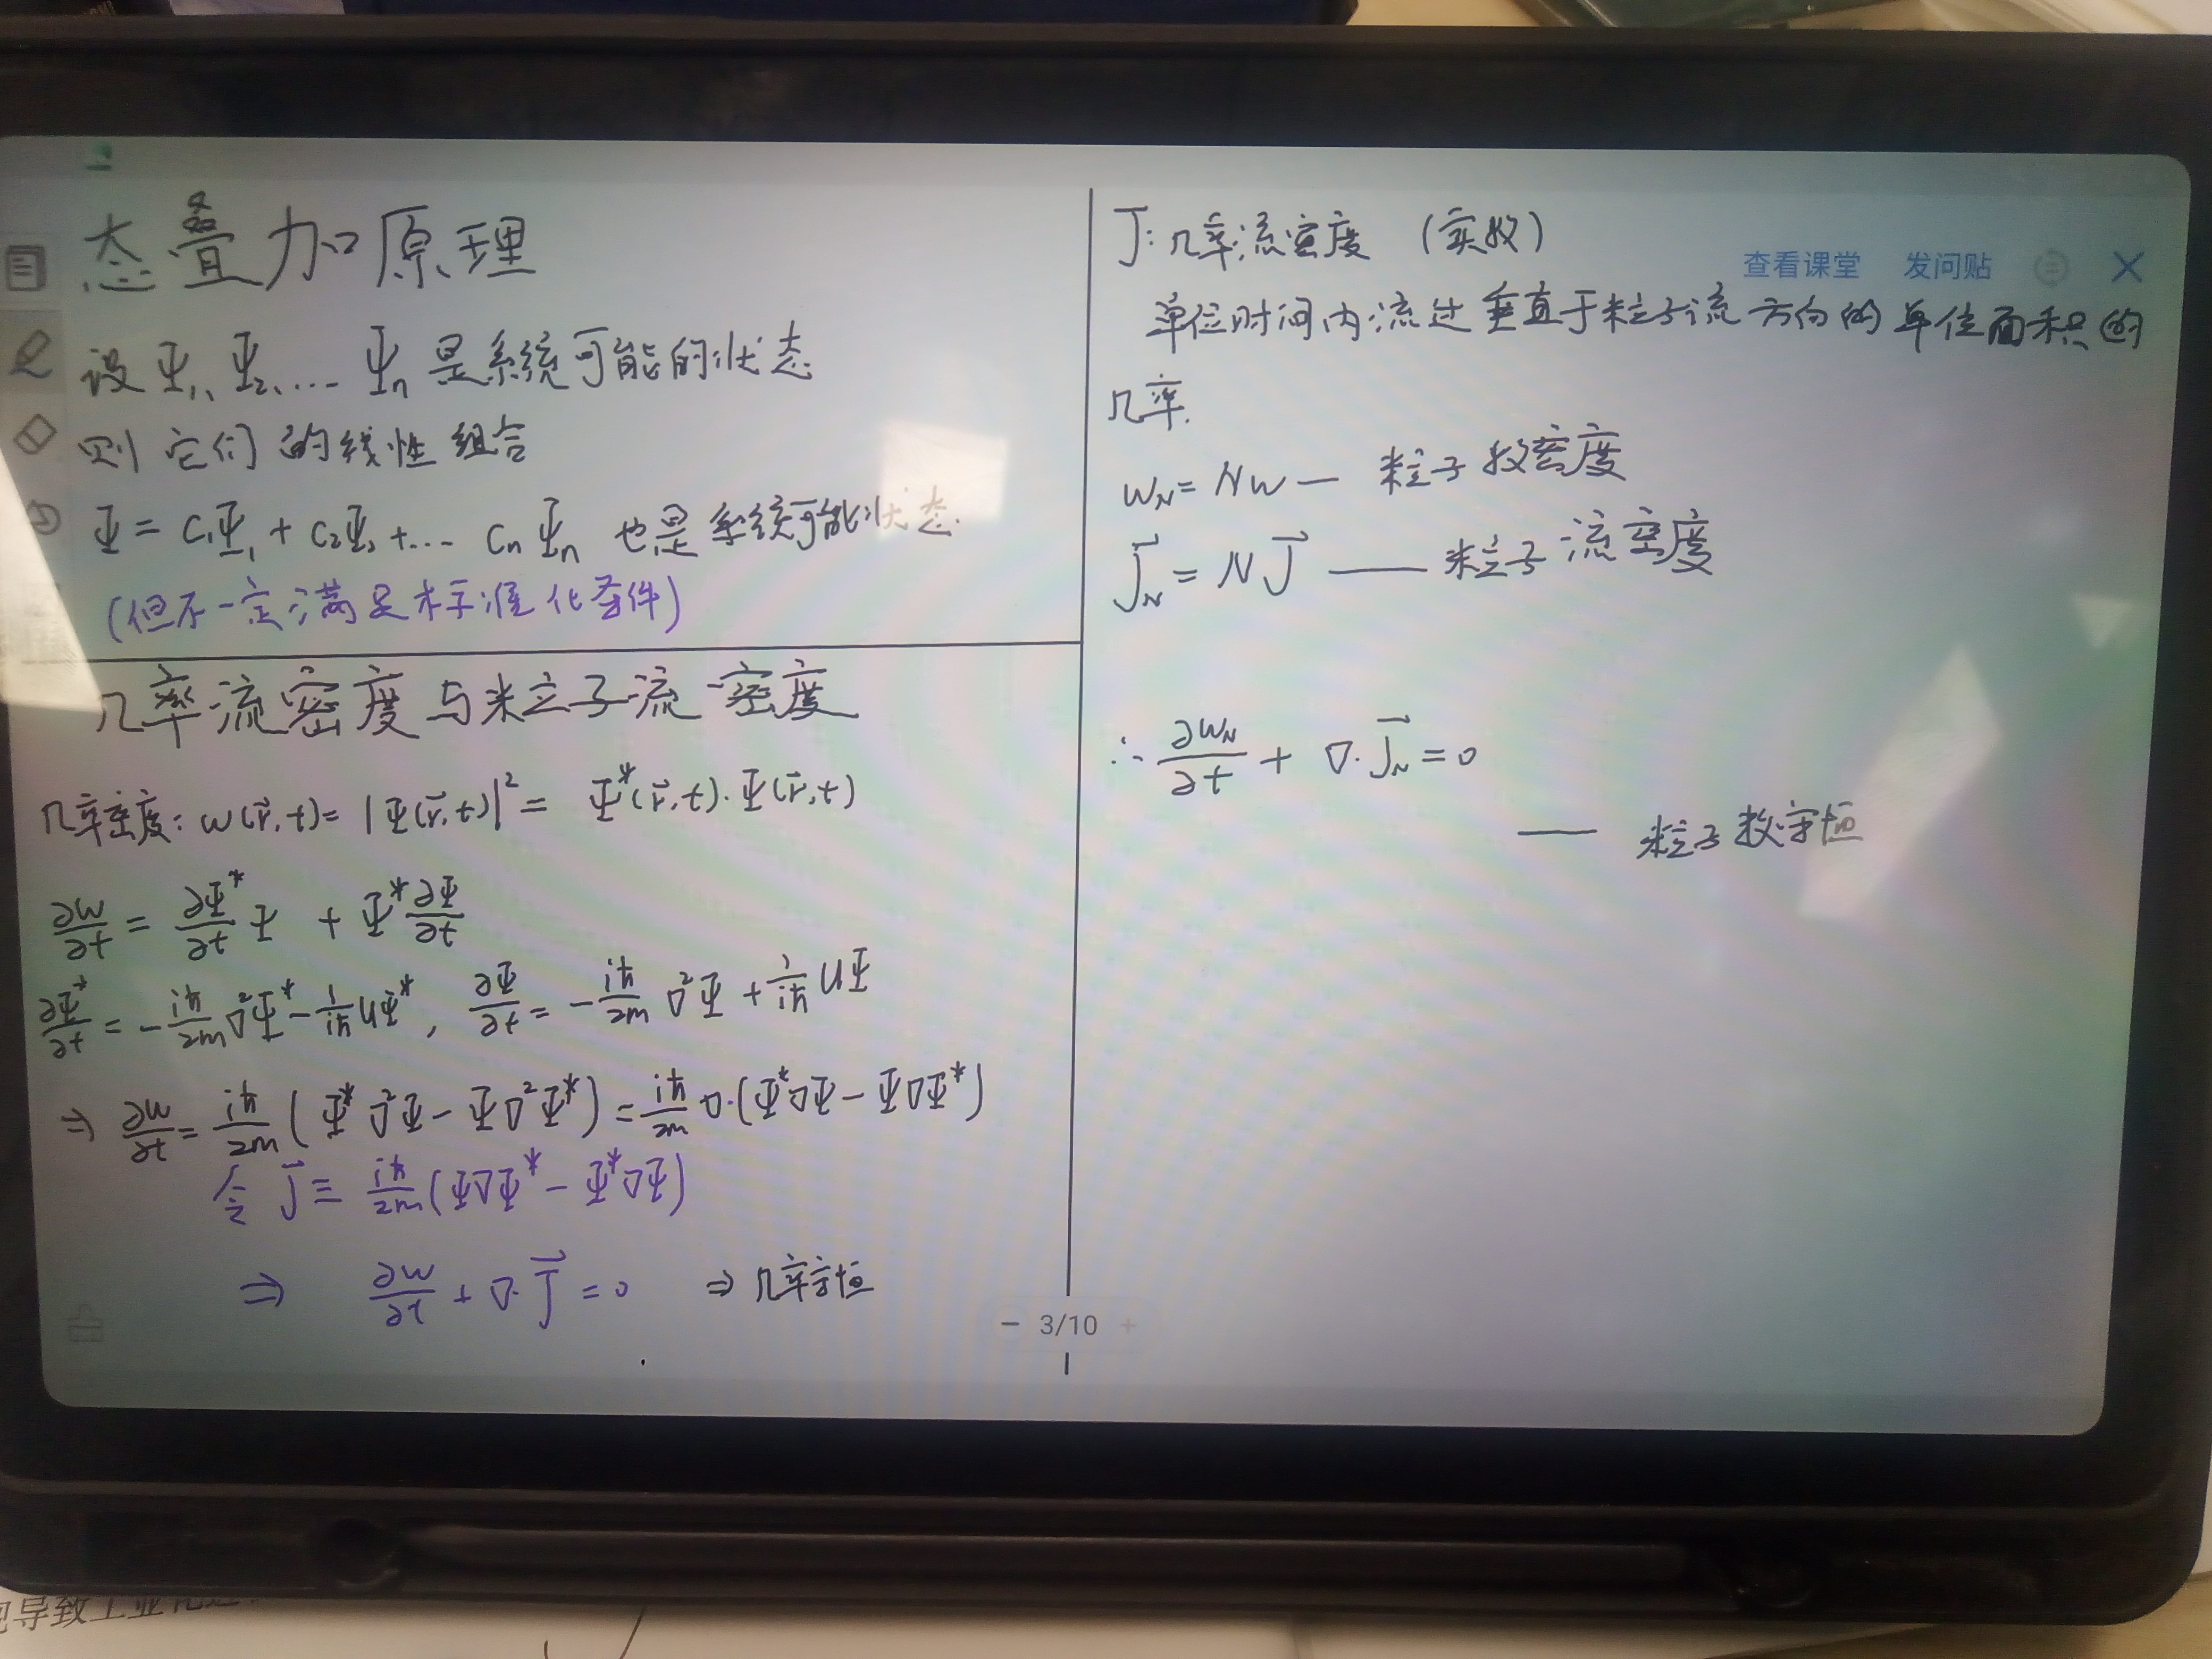 态叠加原理
设 Ψ₁、Ψ₂、… Ψₙ 是系统可能的状态
则 它们 的线性 组合
Ψ = C₁Ψ₁ + C₂Ψ₂ +… Cₙ Ψₙ 也是 系统可能状态.
(但不一定满足标准化条件)
几率流密度与粒子流密度
几率密度: w(r⃗,t) = |Ψ(r⃗,t)|² = Ψ*(r⃗,t)·Ψ(r⃗,t)
∂w/∂t = ∂Ψ*/∂t Ψ + Ψ* ∂Ψ/∂t
∂Ψ*/∂t = -iℏ/2m ∇²Ψ* - 1/iℏ UΨ*, ∂Ψ/∂t = -iℏ/2m ∇²Ψ + 1/iℏ UΨ
⇒ ∂w/∂t = iℏ/2m (Ψ*∇²Ψ - Ψ∇²Ψ*) = iℏ/2m ∇·(Ψ*∇Ψ - Ψ∇Ψ*)
令 J⃗ ≡ iℏ/2m (Ψ∇Ψ* - Ψ*∇Ψ)
⇒ ∂w/∂t + ∇·J⃗ = 0 ⇒ 几率守恒
J⃗: 几率流密度 (实数)
查看课堂 发问贴
单位时间内流过垂直于粒子流方向的单位面积的
几率.
w_N = Nw — 粒子数密度
J⃗_N = NJ⃗ —— 粒子流密度
∴ ∂w_N/∂t + ∇·J⃗_N = 0
—— 粒子数守恒
− 3/10 +
导致工业化